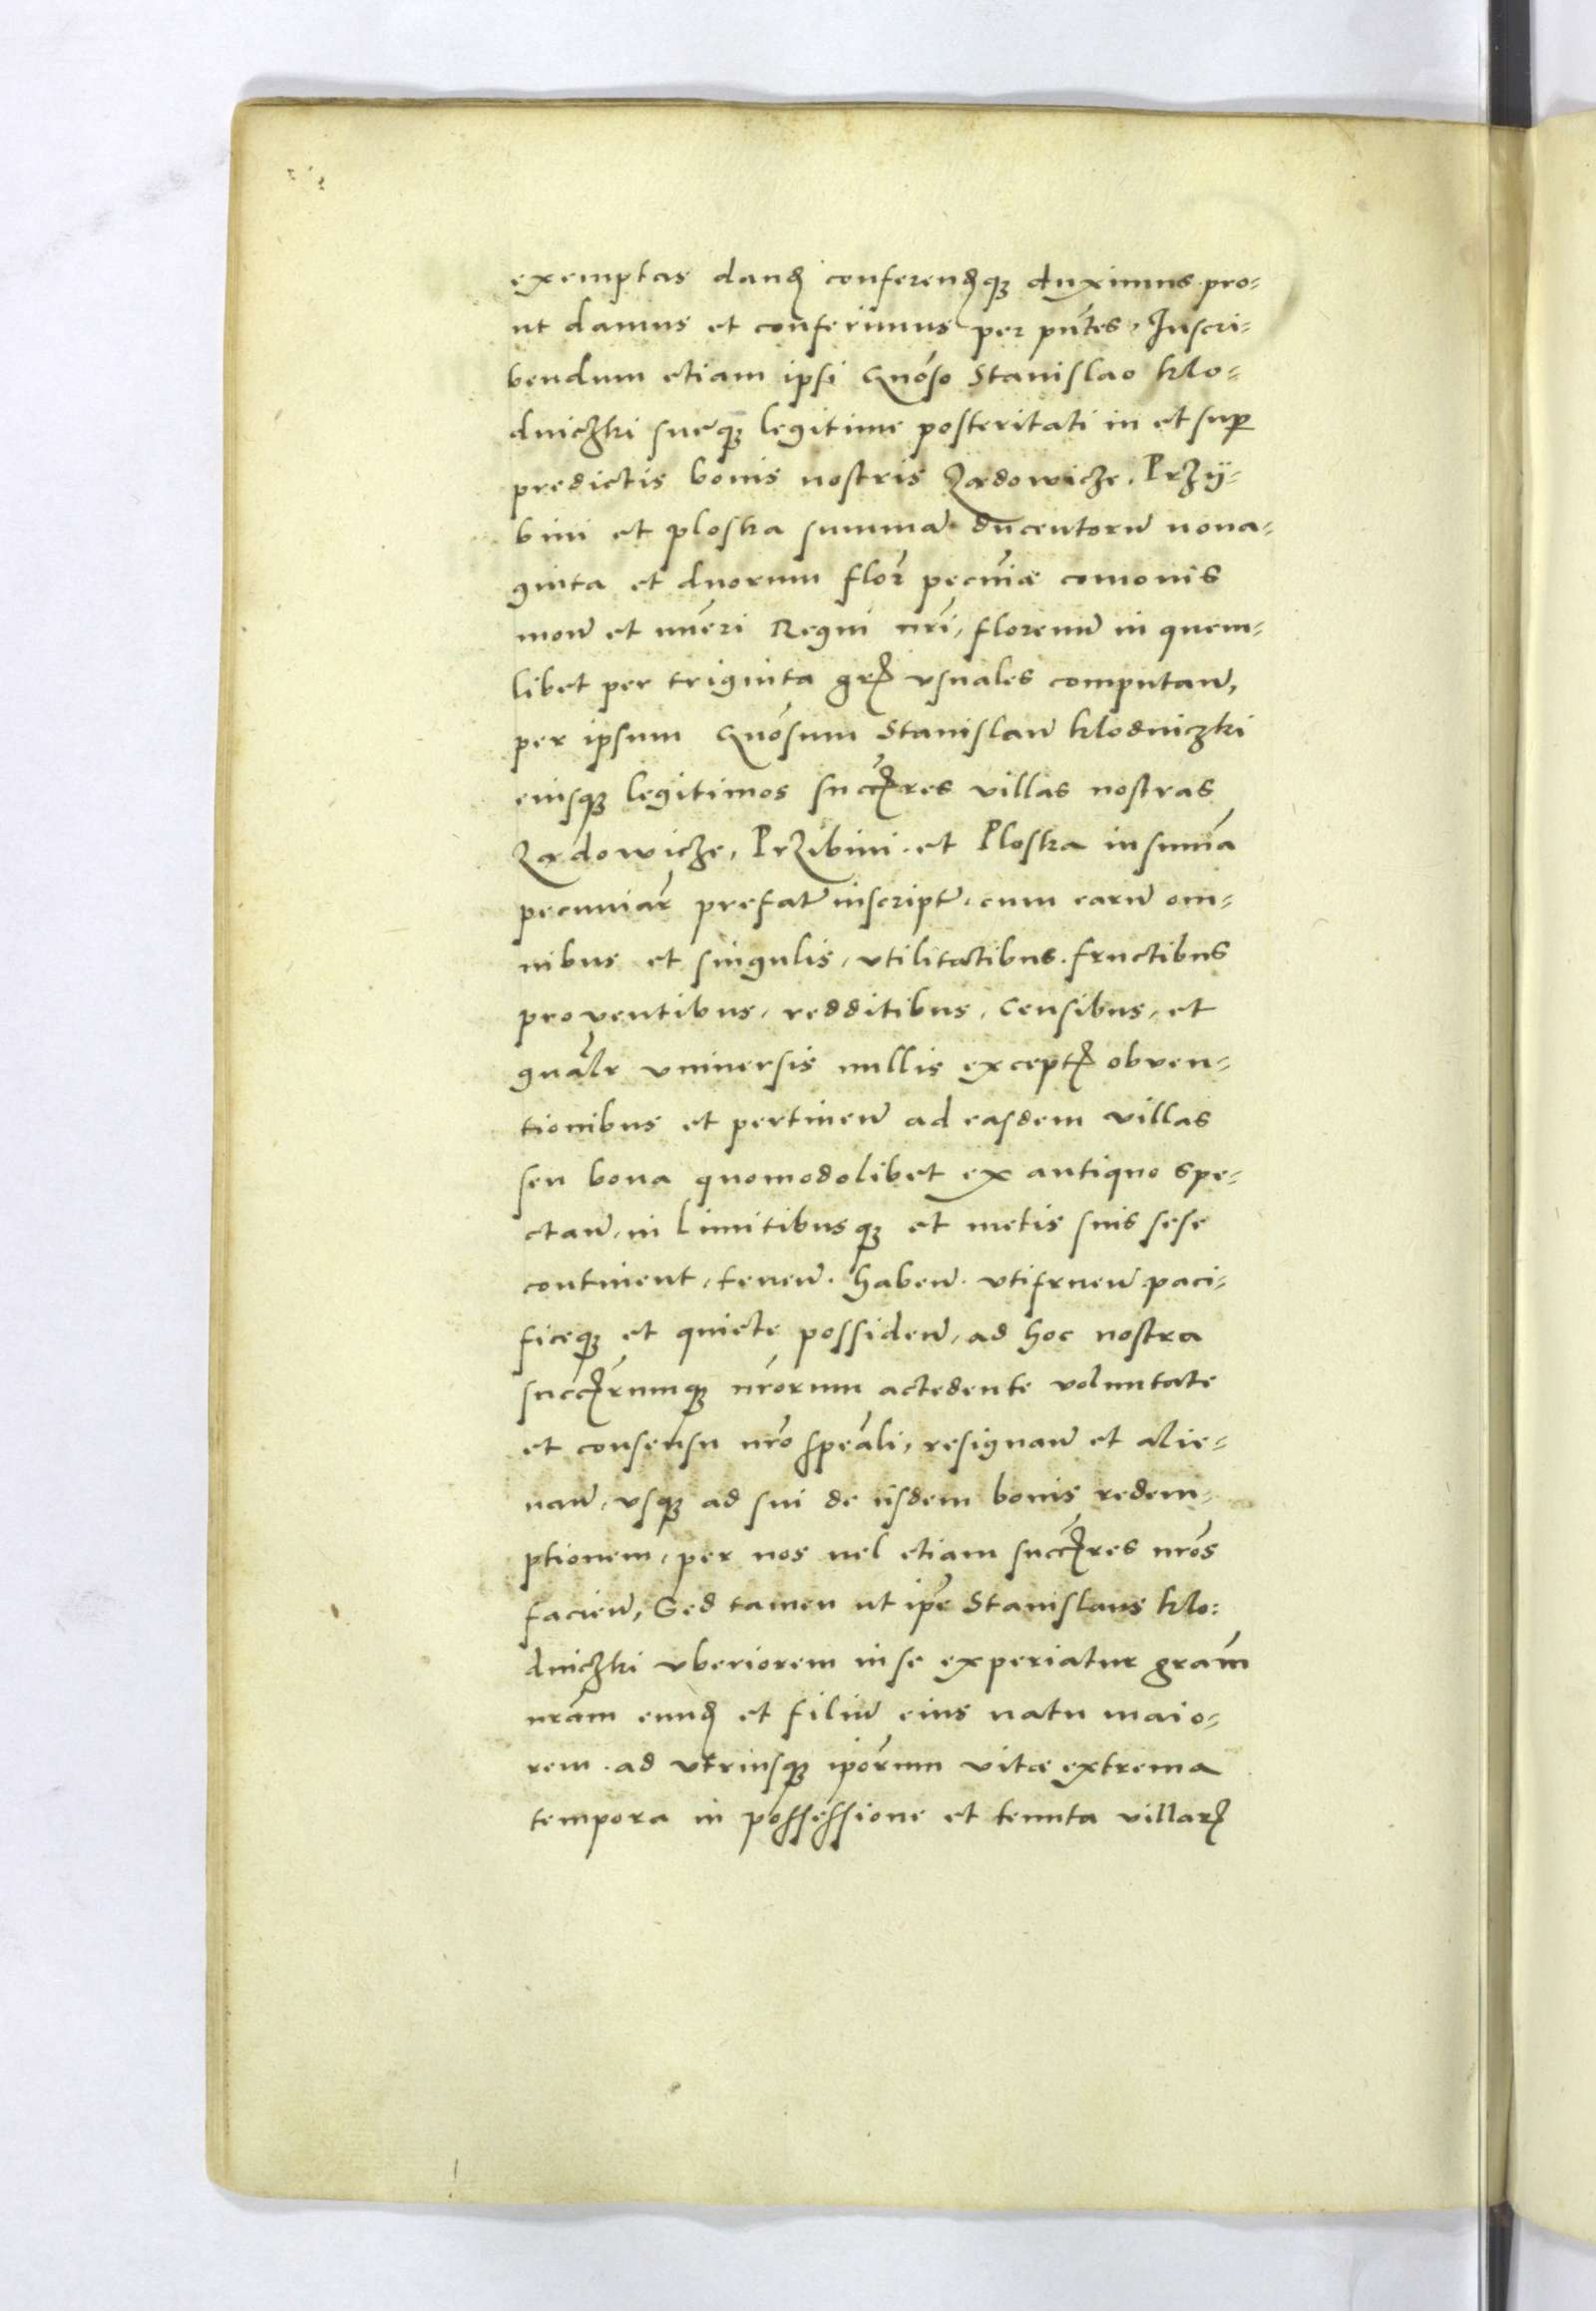 exemptas dand conferendq duximus pro-
ut damus et conferimus per pntes, Inscri-
bendum etiam ipsi Gnoso Stanislao Klo-
dniczki sueq legitime posteritati in et sup
predictis bonis nostris Zadowicze, Przÿ-
bini et ploska summa ducentoru nona-
ginta et duorum flor pecuniæ comonis
mone et nueri Regni nri, florenu in quem-
libet per triginta gr usuales computan,
per ipsum Gnosum Stanislau Klodniczki
eiusq legitimos succres villas nostras
Zadowicze, Przibini et Ploska in suma
pecuniar prefat inscript cum earu om-
nibus et singulis, vtilitatibus. fructibus
proventibus, redditibus, censibus, et
gnalr vniversis nullis except obven-
tionibus et pertinen ad easdem villas
seu bona quomodolibet ex antiquo spe-
ctan, in limitibusq et metis suis sese
continent, tenen. haben. vtifruen paci-
ficeq et quiete possiden, ad hoc nostra
succrumq nrorum accedente voluntate
et consensu nro speali, resignan et alie-
nan, vsq ad sui de iisdem bonis redem-
ptionem, per nos vel etiam succres nros
facien, Sed tamen ut ipe Stanislaus Klo-
dniczki vberiorem in se experiatur gram
nram eund et filiu eius natu maio-
rem. ad vtriusq iporum vitæ extrema
tempora in possessione et tenuta villar